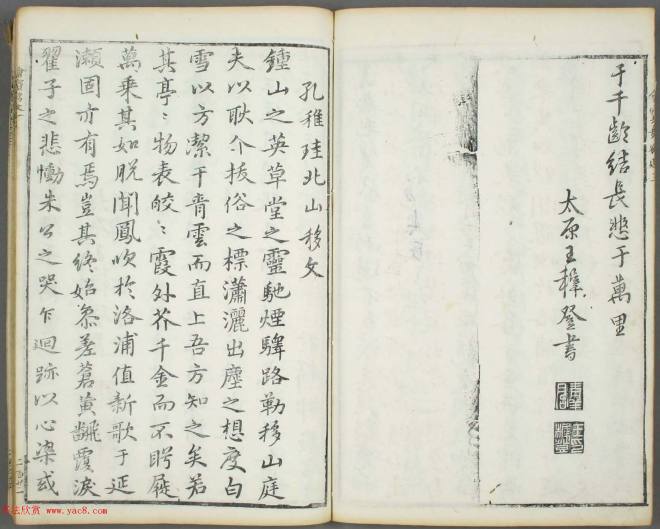 于千齡結長悲于萬里
太原王穉登書
孔稚珪北山移文
鍾山之英草堂之靈馳煙驛路勒移山庭
夫以耿介拔俗之標瀟灑出塵之想度白
雪以方潔干青雲而直上吾方知之矣若
其亭〻物表皎〻霞外芥千金而不眄屣
萬乘其如脫聞鳳吹於洛浦值新歌于延
瀨固亦有焉豈其終始參差蒼黃翻覆淚
翟子之悲慟朱公之哭乍迴跡以心染或
书法欣赏 www.yac8.com